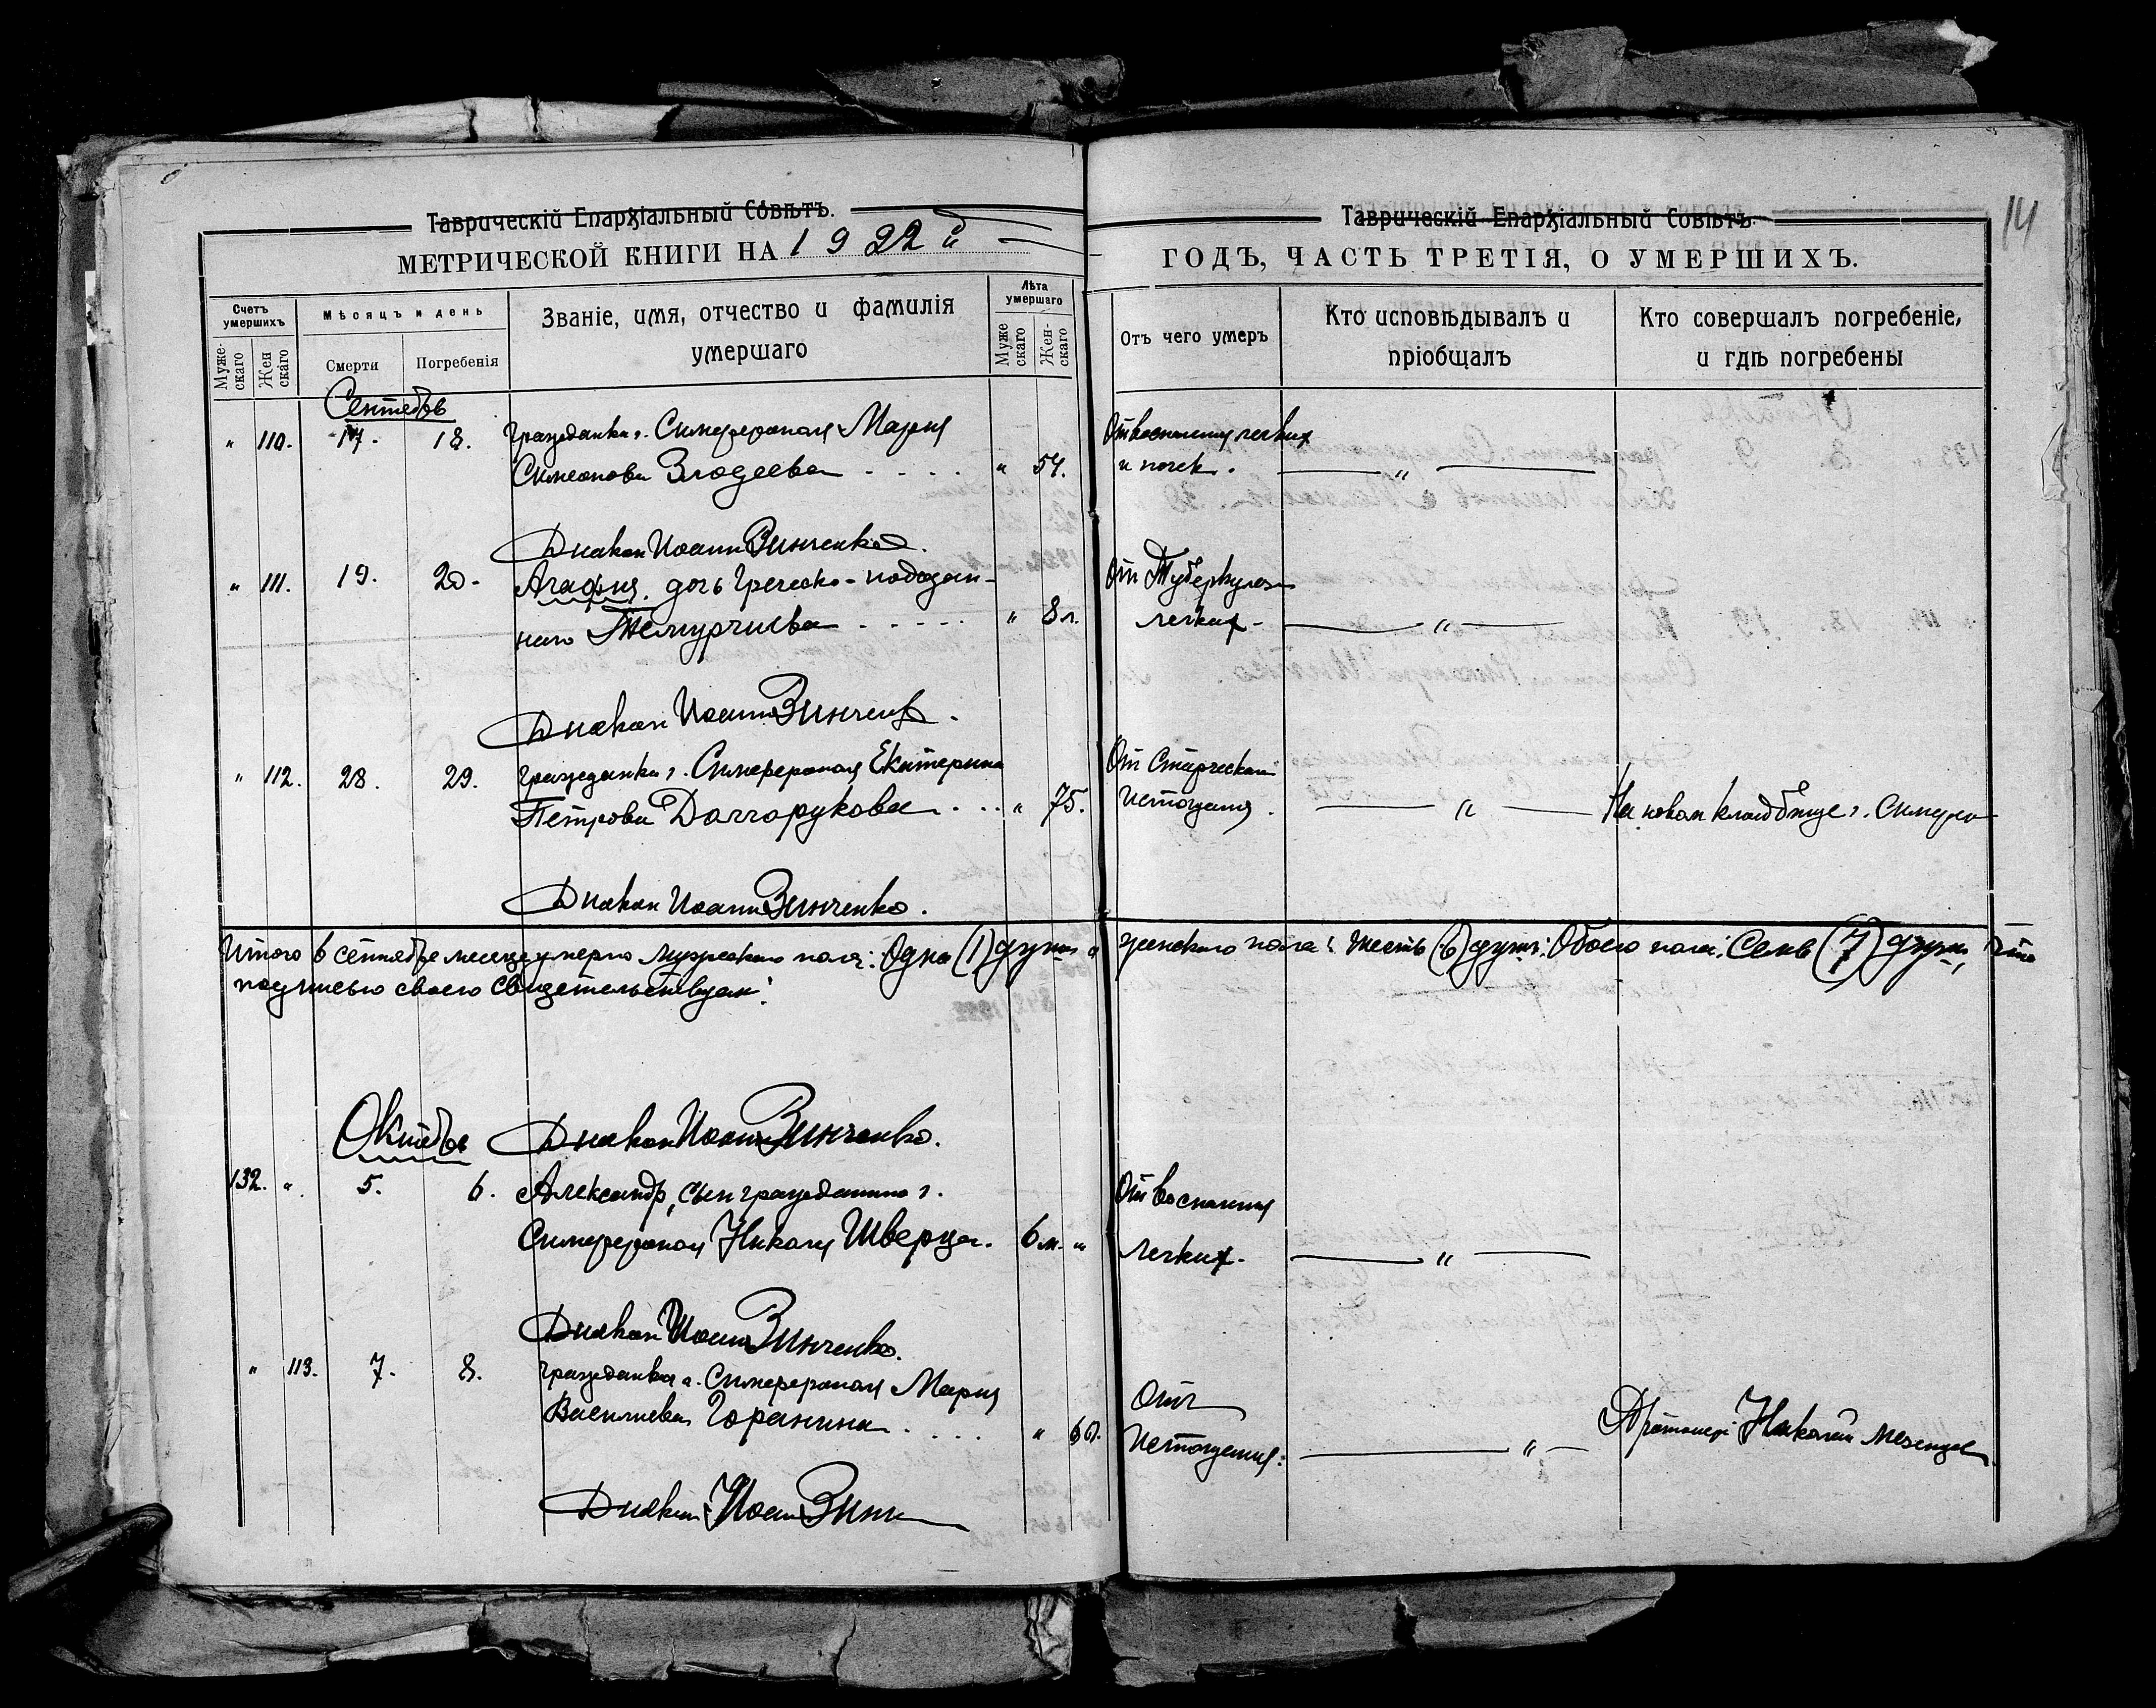 Таврическій Епархіальный Совѣтъ.
МЕТРИЧЕСКОЙ КНИГИ НА 1922й
Счетъ умершихъ
Муже-скаго
Жен скаго
Мѣсяцъ и день
Смерти
Погребенія
Званіе, имя, отчество и фамилія
умершаго
Лѣта умершаго
Муже скаго
Жен-скаго
Сентябрь
" 110. 17. 18. Гражданка г. Симферополя Мария
Симеонова Злодеева " 54.
Диакон Иоанн Зинченко.
" 111. 19. 20. Агафия, дочь Греческо-пододан-
наго Темурчиева " 8 л.
Диакон Иоанн Зинченко.
" 112. 28. 29. Гражданка г. Симферополя Екатерина
Петрова Долгорукова " 75.
Диакон Иоанн Зинченко.
Итого в сентябре месяце умерло мужеского пола: Одна (1) душа и
подписью своею свидетельствуем:
Октябрь Диакон Иоанн Зинченко.
132. " 5. 6. Александр, сын гражданина г.
Симферополя Николая Шверца. 6 м. "
Диакон Иоанн Зинченко.
" 113. 7. 8. Гражданка г. Симферополя Мария
Василиева Горянина "
Диакон Иоанн Зинч
Таврическій Епархіальный Совѣтъ.
14
ГОДЪ, ЧАСТЬ ТРЕТІЯ, О УМЕРШИХЪ.
Отъ чего умеръ
Кто исповѣдывалъ и
пріобщалъ
Кто совершалъ погребеніе,
и гдѣ погребены
От воспаления легких
и почек. "
От Туберкулеза
легких "
От Старческаго
истощения. " На новом кладбище г. Симфер
женского пола: Шесть (6) душ: Обоего пола: Семь (7) душ, что
От воспаления
легких. "
От
Истощения: " Протоиерей Николай Мезенцев